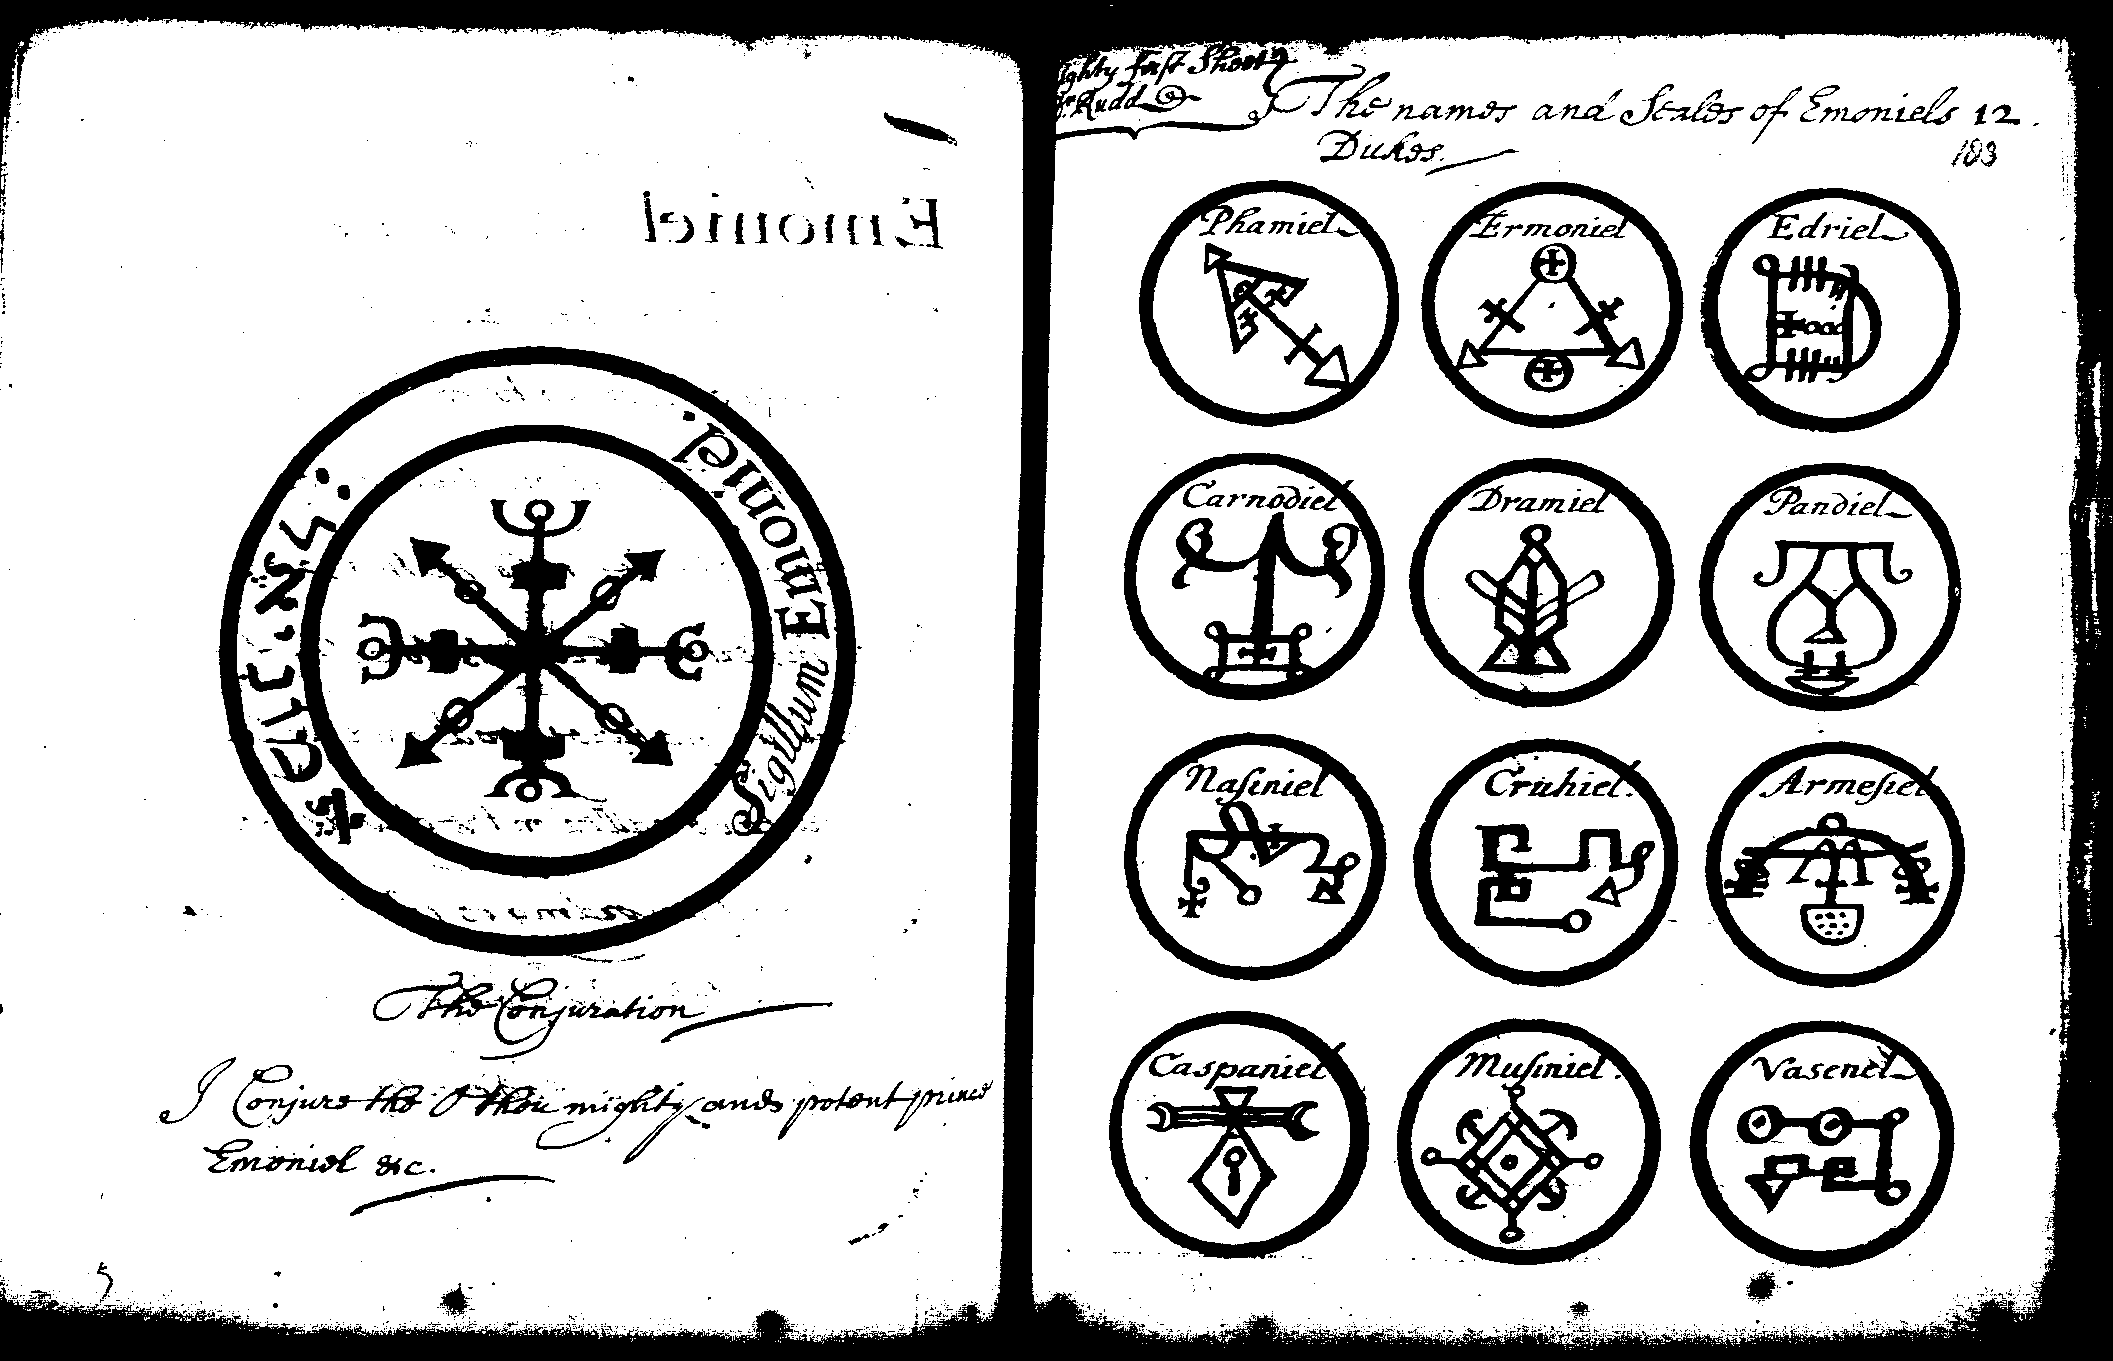 Emoniel
Sigillum Emoniel.
The Conjuration
I Conjure the O thou mighty and potent prince
Emoniel &c.
ighty first Sheet
Dr. Rudd
The names and Seales of Emoniels 12
Dukes.
183
Phamiel
Ermoniel
Edriel
Carnodiel
Dramiel
Pandiel
Naſiniel
Cruhiel.
Armeſiel
Caspaniel
Muſiniel.
Vasenel